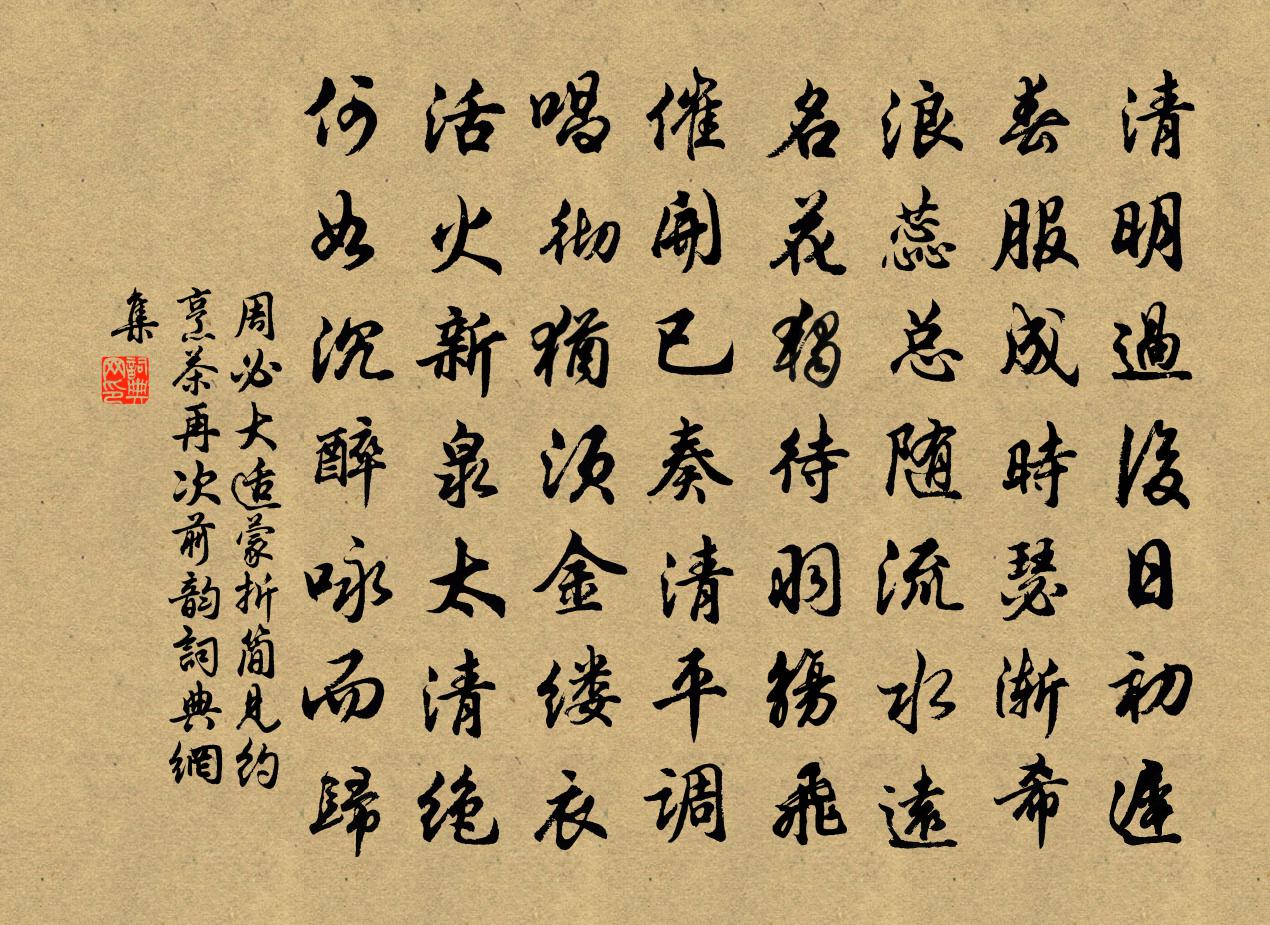 清明過後日初遲
春服成時瑟漸希
浪蕊总随流水遠
名花獨待羽觴飛
催開已奏清平調
唱徹猶須金缕衣
活火新泉太清绝
何如沉醉咏而歸
周必大适蒙折简見约
烹茶再次前韵詞典網
集
詞典网印